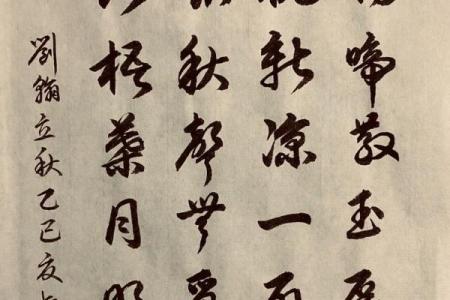 啼散玉屏
新凉一扇
秋聲無覓
梧葉月明
劉翰立秋乙巳夏